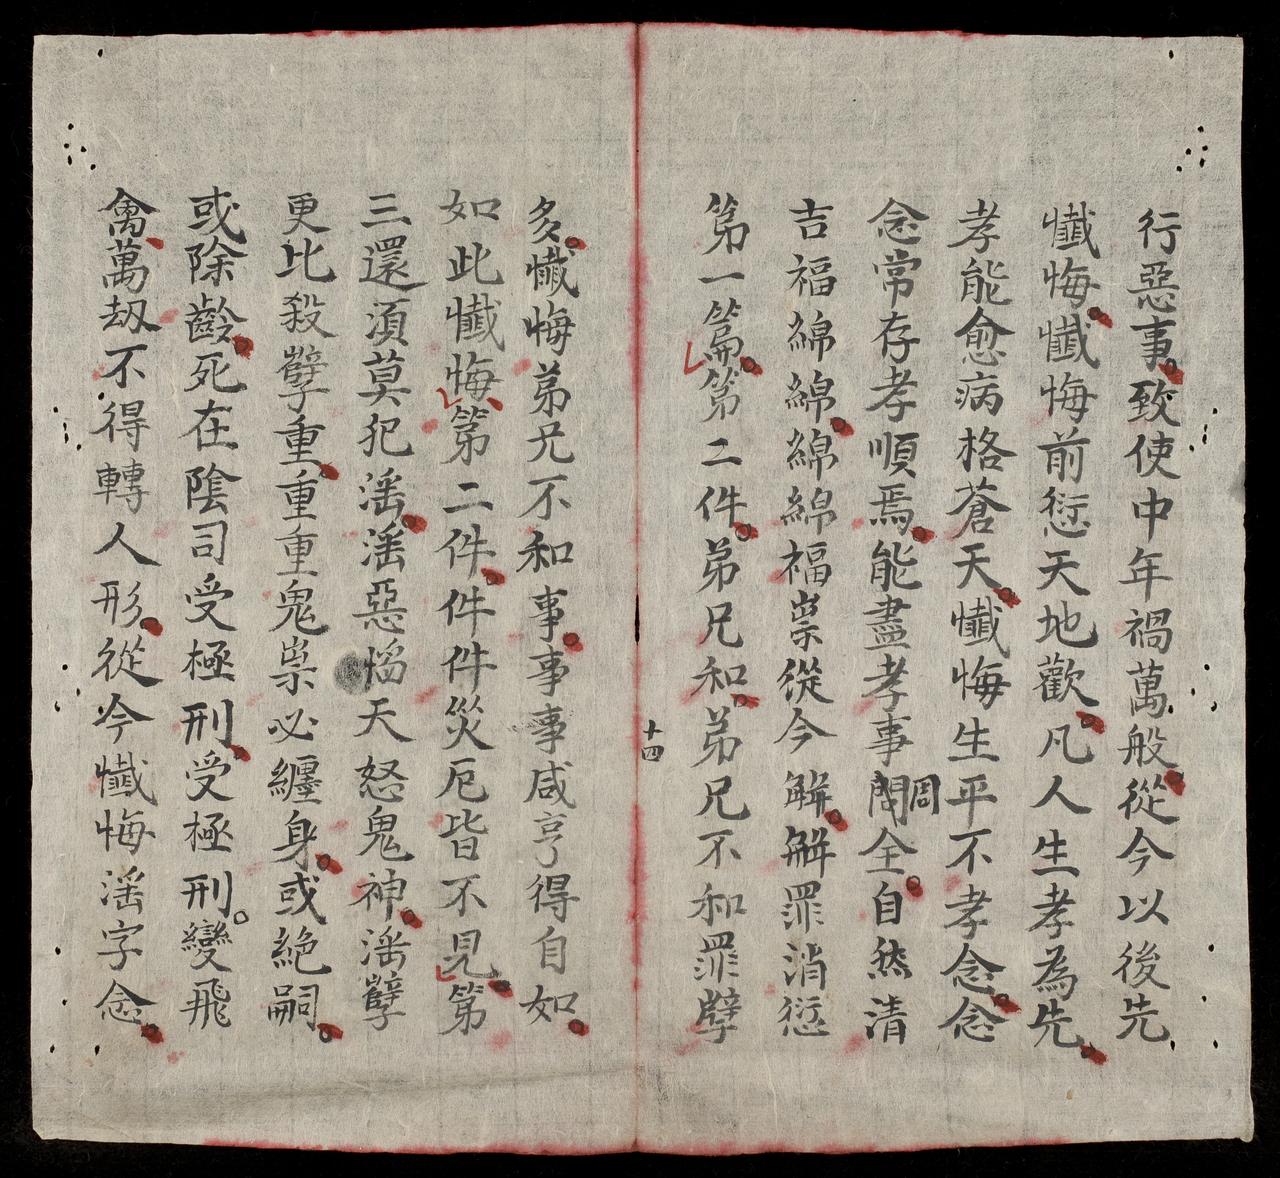 行惡事致使中年禍萬般從今以後先
懺悔懺悔前愆天地歡凡人生孝為先
孝能愈病格蒼天懺悔生平不孝念念
念常存孝順焉能盡孝事閗周全自然清
吉福綿綿綿綿福祟從今解解罪消愆
第一篇第二件弟兄和弟兄不和罪孽
十四
多懺悔弟兄不和事事事咸亨得自如
如此懺悔第二件件件災厄皆不見第
三還須莫犯滛滛惡惱天怒鬼神滛孽
更比殺孽重重重鬼祟必纏身或絕嗣
或除齡死在陰司受極刑受極刑變飛
禽萬劫不得轉人形從今懺悔滛字念